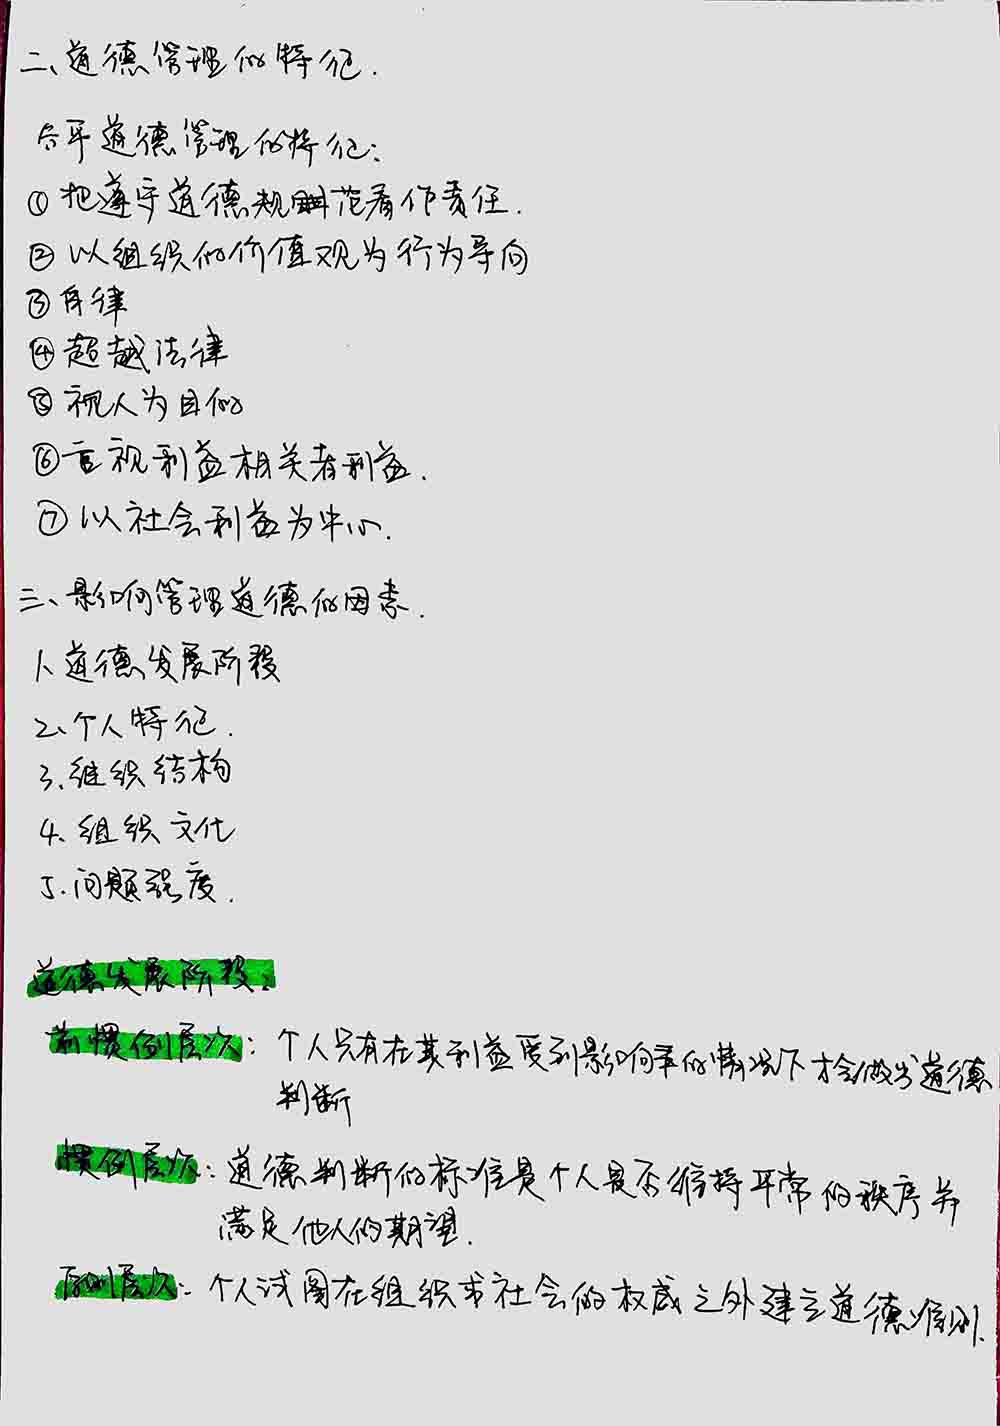 二、道德管理的特征.
合乎道德管理的特征:
① 把遵守道德规范看作责任.
② 以组织的价值观为行为导向
③ 自律
④ 超越法律
⑤ 视人为目的
⑥ 重视利益相关者利益.
⑦ 以社会利益为中心.
三、影响管理道德的因素.
1、道德发展阶段
2、个人特征.
3、组织结构
4、组织文化
5.问题强度.
道德发展阶段:
前惯例层次: 个人只有在其利益受到影响的情况下才会做出道德
判断
惯例层次: 道德判断的标准是个人是否维持平常的秩序并
满足他人的期望.
原则层次: 个人试图在组织或社会的权威之外建立道德准则.